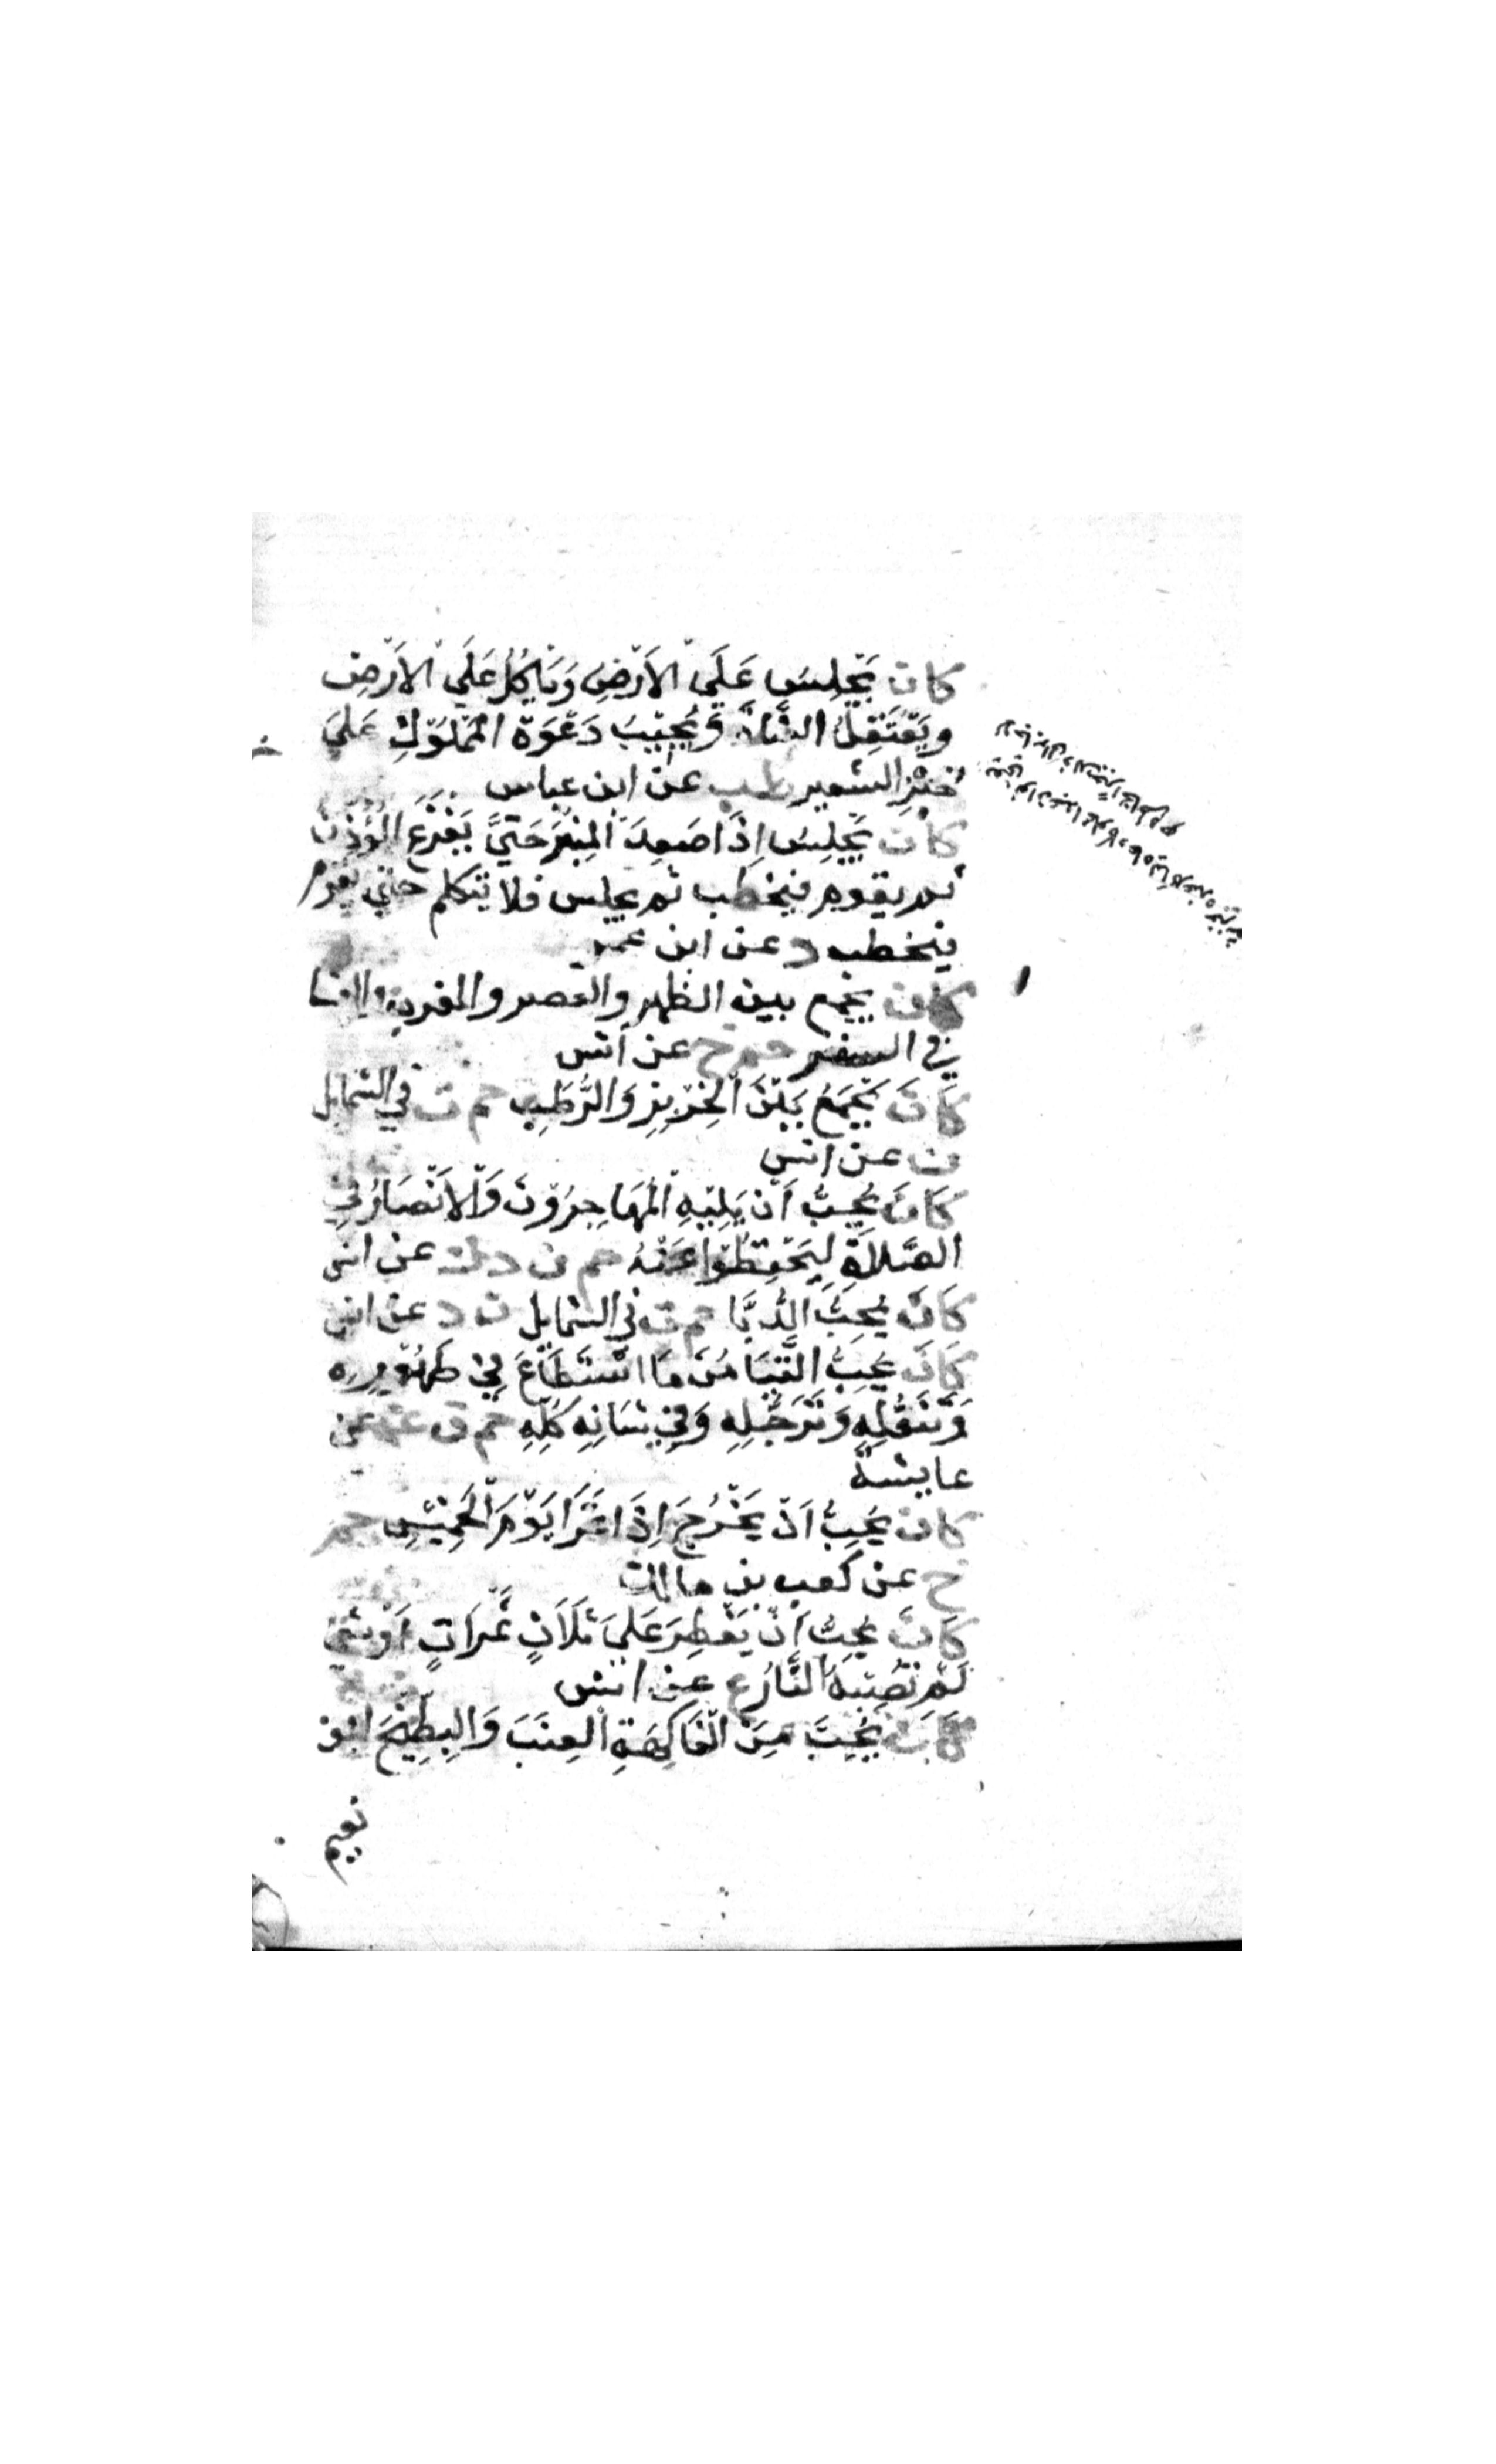 كان يَجْلِسُ عَلَى الاَرْضِ وَيَاكُلُ عَلَى الاَرْضِ
ويَعْتَقِلُ الشَّاةَ وَيُجِيْبُ دَعْوَةَ المَمْلُوْكِ عَلَيَ
خُبْزِ الشعير طب عن ابن عباس
كان يَجْلِسُ اِذَا صَعِدَ المِنْبَرَ حَتَّيَ يَفْرَغَ المُؤَذِنُ
ثم يقوم فيخطب ثم يجلس فلا يتكلم حتي يقوم
فيخطب د عن ابن عمر
كان يجمع بين الظهر والعصر والمغرب والعشا
في السفر حم خ عن انس
كَانَ يَجْمَعُ بَيْنَ الْخِرْبِزِ وَالرُّطَبِ حم ت في الشمايل
ن عن انس
كَانَ يُحِبُّ اَنْ يَلِيَهِ الْمُهَاجِرُوْنَ وَالْاَنْصَارُ فِي
الصَّلاَةِ لِيَحْفَظُوْا عَنْهُ حم ن د ك عن انس
كَانَ يُحِبُّ الدُّبَّا حم ت في الشمايل ن د عن انس
كَانَ يُحِبُّ التَّيَامُنَ مَا اسْتَطَاعَ فِيْ طَهُوْرِهِ
وَتَنَعُّلِهِ وَتَرَجُّلِهِ وَفِيْ شَانِهِ كُلِّهِ حم ق عن
عايشة
كان يُحِبُّ اَنْ يَخْرُجَ اِذَا غَزَا يَوْمَ الْخَمِيْسِ حم
خ عن كعب بن مالك
كَانَ يُحِبُّ اَنْ يَفْطِرَ عَلَيَ ثَلَاثِ تَمَرَاتٍ اَوْ شَيْ
لَمْ تُصِبْهُ النَّارُ ع عن انس
كَانَ يُحِبُّ مِنَ الْفَاكِهَةِ الْعِنَبَ وَالْبِطِّيْخَ ابو
نعيم